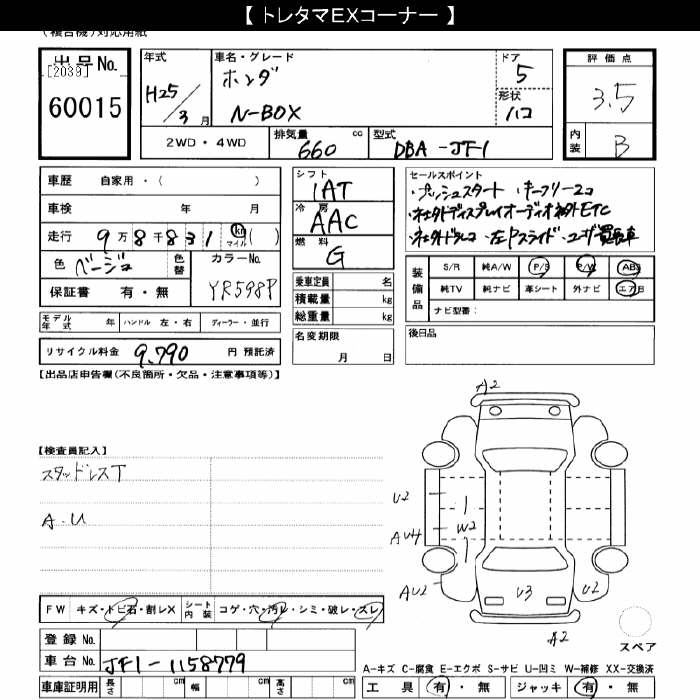 【 トレタマEXコーナー 】
(複合機)対応用紙
出品No. [2039] 60015
年式 H25/3月
車名・グレード ホンダ N-BOX
ドア 5
形状 ハコ
評価点 3.5
内装 B
2WD・4WD
排気量 660 cc
型式 DBA-JF1
車歴 自家用・( )
車検 年 月
走行 9万8千831 km マイル ( )
色 ベージュ 色替
カラーNo. YR598P
保証書 有・無
シフト IAT
冷房 AAC
燃料 G
乗車定員 名
積載量 kg
総重量 kg
セールスポイント
・プッシュスタート ・キーフリーコ
・社外ディスプレイオーディオ 社外ETC
・社外ドラレコ ・左Pスライド ・ユーザー買取車
装備品 S/R 純A/W P/S P/W ABS
純TV 純ナビ 革シート 外ナビ エアB
ナビ型番:
モデル年式 年 ハンドル 左・右 ディーラー・並行
名変期限 月 日
後日品
リサイクル料金 9,790 円 預託済
【出品店申告欄(不良箇所・欠品・注意事項等)】
A2
【検査員記入】
スタッドレスT
A・U
U2
AU4
W2
AU2
U3
U2
A2
スペア
FW キズ・トビ石・割レX シート内装 コゲ・穴・汚レ・シミ・破レ・スレ
登録No.
車台No. JF1-1158779
A-キズ C-腐食 E-エクボ S-サビ U-凹ミ W-補修 XX-交換済
車庫証明用 長さ cm 幅 cm 高さ cm
工具 有・無 ジャッキ 有・無